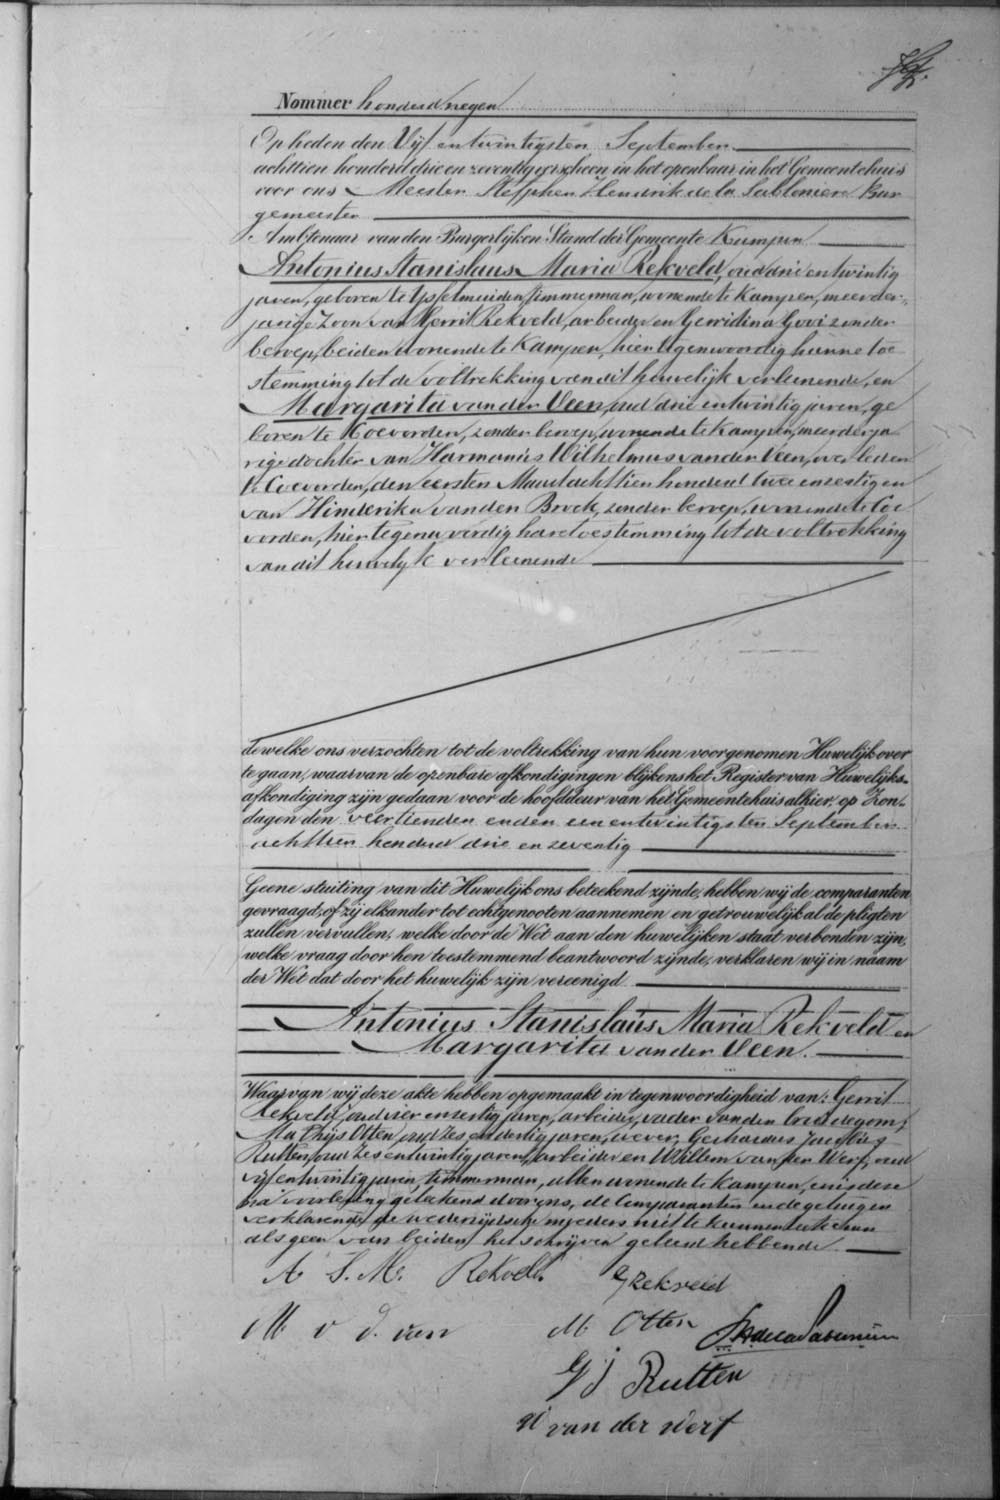 Nommer honderd negen
Op heden den Vijf en twintigsten September
achttien honderd drie en zeventig verscheen in het openbaar in het Gemeentehuis
voor ons Meester Stephen Hendrik de la Sabloniere Bur
gemeester
Ambtenaar van den Burgerlijken Stand der Gemeente Kampen
Antonius Stanislaus Maria Rekveld, oud drie en twintig
jaren, geboren te IJsselmuiden, timmerman, wonende te Kampen, meerder-
jarige Zoon van Gerrit Rekveld, arbeider en Gerridina Gooi zonder
beroep, beiden wonende te Kampen, hier tegenwoordig hunne toe
stemming tot de voltrekking van dit huwelijk verleenende, en
Margarita van der Veen, oud drie en twintig jaren, ge
boren te Koevorden, zonder beroep, wonende te Kampen, meerderja
rige dochter van Harmannus Wilhelmus van der Veen, overleden
te Coevorden, den eersten Maart achttien honderd twee en zestig en
van Hinderika van den Broek, zonder beroep, wonende te Coe
vorden, hier tegenwoordig hare toestemming tot de voltrekking
van dit huwelijk verleenende
dewelke ons verzochten tot de voltrekking van hun voorgenomen Huwelijk over
te gaan, waarvan de openbare afkondigingen blijkens het Register van Huwelijks-
afkondiging zijn gedaan voor de hoofddeur van het Gemeentehuis alhier, op Zon-
dagen den veertienden en den een en twintigsten September
achttien honderd drie en zeventig
Geene stuiting van dit Huwelijk ons beteekend zijnde, hebben wij de comparanten
gevraagd, of zij elkander tot echtgenooten aannemen en getrouwelijk al de pligten
zullen vervullen, welke door de Wet aan den huwelijken staat verbonden zijn,
welke vraag door hen toestemmend beantwoord zijnde, verklaren wij in naam
der Wet dat door het huwelijk zijn vereenigd
Antonius Stanislaus Maria Rekveld en
Margarita van der Veen.
Waarvan wij deze akte hebben opgemaakt in tegenwoordigheid van: Gerrit
Rekveld, oud vier en zestig jaren, arbeider, vader van den bruidegom,
Mathijs Otten, oud zes en dertig jaren, wever, Gerhardus
Rutten, oud zes en twintig jaren, arbeider en Willem van der Werf, oud
vijf en twintig jaren, timmerman, allen wonende te Kampen, en is deze
na voorlezing geteekend door ons, de Comparanten en de getuigen
verklarende de wederzijdsche moeders niet te kunnen teekenen
als geen van beiden het schrijven geleerd hebbende
A S. M. Rekveld G Rekveld
M v d. veen M Otten
G J Rutten
W van der Werf